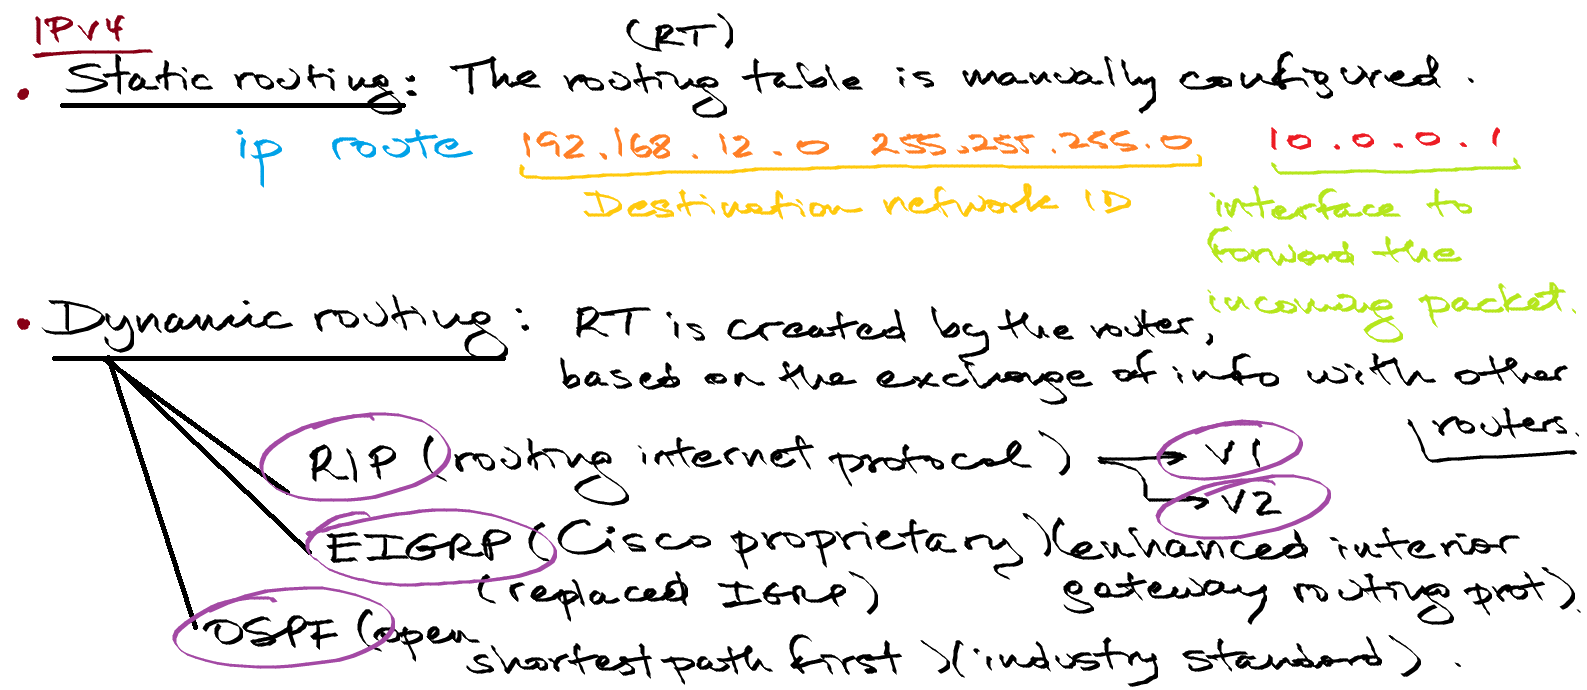 IPv4
(RT)
• Static routing: The routing table is manually configured.
ip route 192.168.12.0 255.255.255.0 10.0.0.1
Destination network ID
interface to
forward the
incoming packet.
• Dynamic routing: RT is created by the router,
based on the exchange of info with other
routers.
RIP (routing internet protocol) → V1
→ V2
EIGRP (Cisco proprietary) (enhanced interior
(replaced IGRP) gateway routing prot).
OSPF (open
shortest path first) (industry standard).